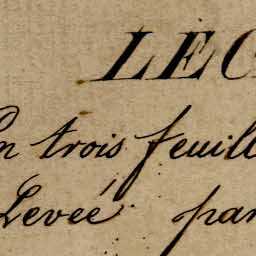 LEG
En trois feuill
Levée par